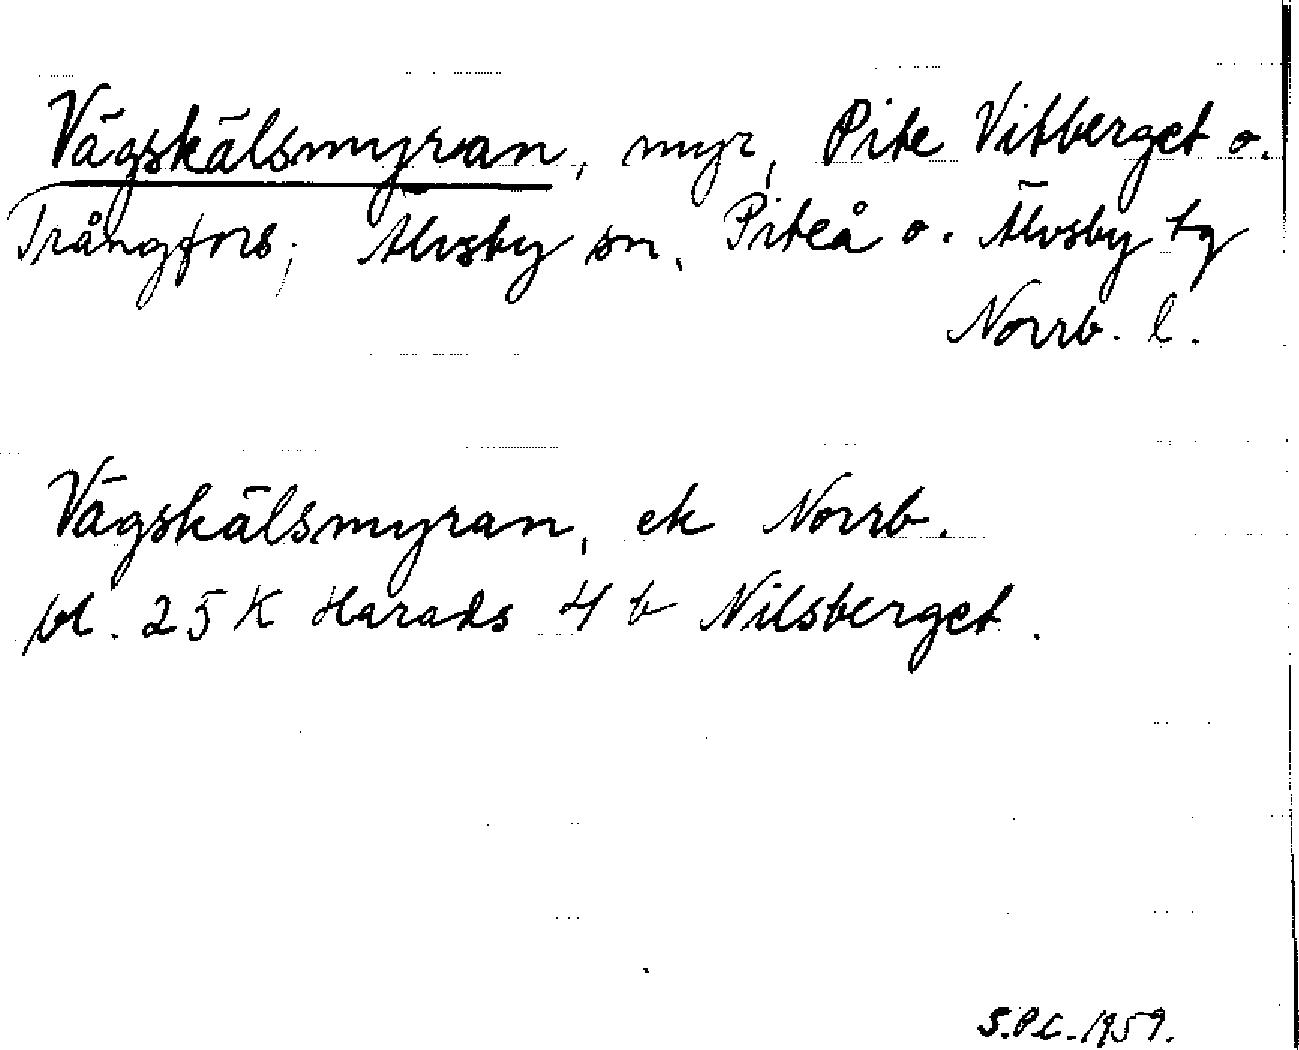 Vägskälsmyran, myr, Pite Vitberget o.
Trångfors, Älvsby sn, Piteå o. Älvsby tg
Norrb. l.
Vägskälsmyran, ek Norrb.
bl. 25 K Harads 4 b Nilsberget.
S.P.L. 1959.